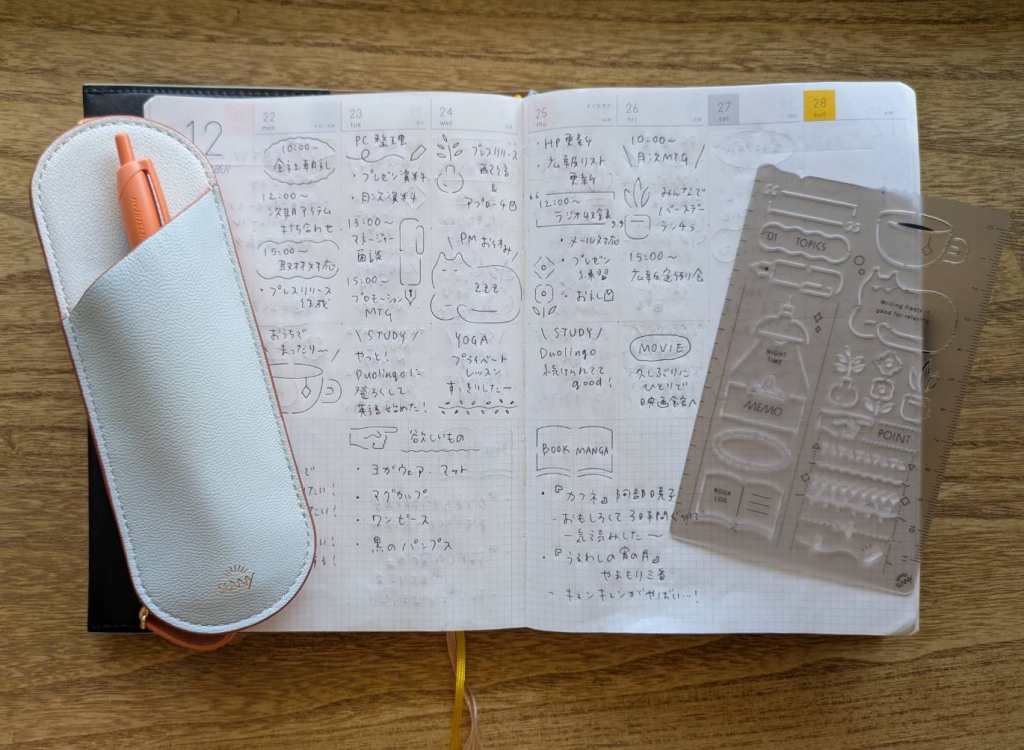 12
22 mon
23 tue
24 wed
25 thu
26 fri
27 sat
28 sun
10:00〜
会社朝礼
12:00〜
次期アイテム
打ち合わせ
15:00〜
取材対応
・プレスリリース
作成
おうちで
まったり〜
PC整理
・プレゼン資料
・月次資料
13:00〜
マネージャー
面談
15:00〜
プロモーション
MTG
\ STUDY /
やっと!
Duolingoに
登ろくして
英語始めた!
プレスリリース
配信
&
アプローチ日
\ PMおやすみ /
zzz
YOGA
プライベート
レッスン
すっきりしたー
・HP更新
・広報リスト
更新
12:00〜
ラジオ収録
・メール対応
・プレゼン
練習
\ STUDY /
Duolingo
続けられてて
good!
10:00〜
\ 月次MTG /
みんなで
バースデー
ランチ
15:00〜
広報定例会
MOVIE
久しぶりに
ひとりで
映画館へ
欲しいもの
・ヨガウェア・マット
・マグカップ
・ワンピース
・黒のパンプス
BOOK MANGA
・『カフネ』阿部暁子
- おもしろくて3日間
一気読みした〜
・『うるわしの宵の月』
やまもり三香
- キュンキュンがやばい…!
01 TOPICS
Writing freely is
good for relaxing.
NIGHT
TIME
MEMO
POINT
BOOK
LOG